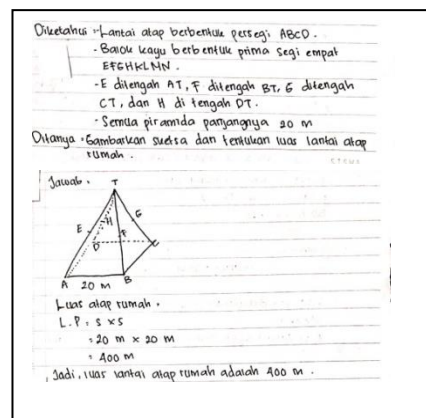 Diketahui : -Lantai atap berbentuk persegi ABCD.
- Balok kayu berbentuk prima segi empat
EFGHKLMN.
- E ditengah AT, F ditengah BT, G ditengah
CT, dan H di tengah DT.
- Semua piramida panjangnya 20 m
Ditanya : Gambarkan sketsa dan tentukan luas lantai atap
rumah.
Jawab.
T
G
H
E
F
D
C
A 20 m B
Luas atap rumah.
L.P = s x s
= 20 m x 20 m
= 400 m
Jadi, luas lantai atap rumah adalah 400 m.